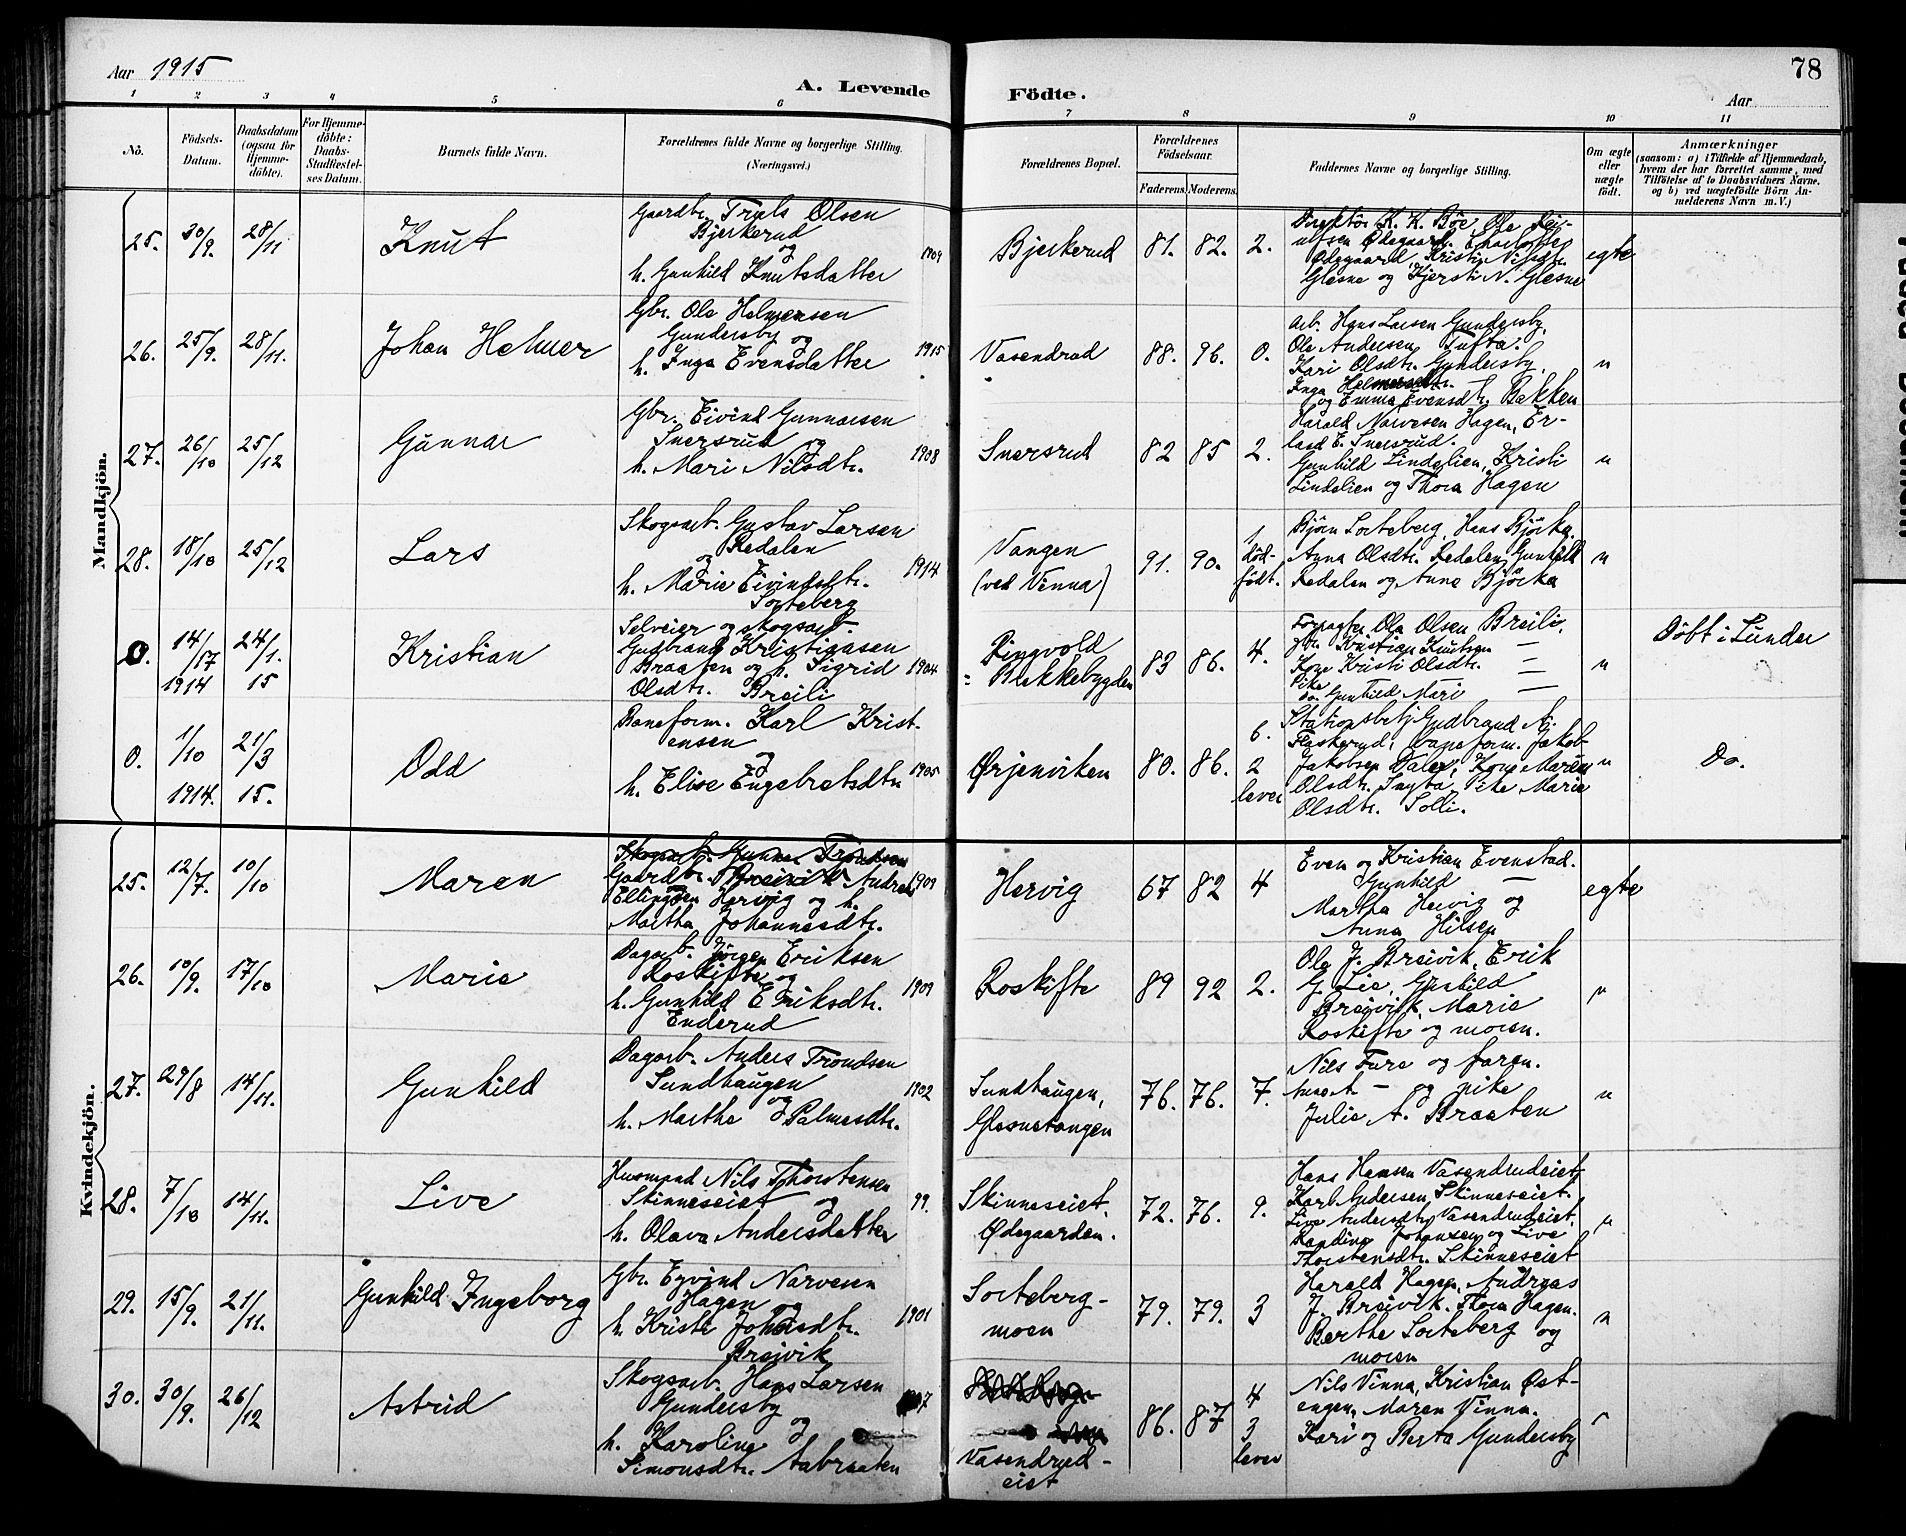 Aar 1915
A. Levende
Födte.
78
Aar
1 2 3 4 5 6 7 8 9 10 11
No.
Födsels-Datum.
Daabsdatum (ogsaa for Hjemme-döbte).
For Hjemme-döbte: Daabs-Stadfæstel-ses Datum.
Barnets fulde Navn.
Forældrenes fulde Navne og borgerlige Stilling. (Næringsvei.)
Forældrenes Bopæl.
Forældrenes Födselsaar.
Faderens. Moderens.
Faddernes Navne og borgerlige Stilling.
Om ægte eller uægte födt.
Anmærkninger
(saasom: a) i Tilfælde af Hjemmedaab,
hvem der har forrettet samme, med
Tilföielse af to Daabsvidners Navne.
og b) ved uægtefödte Börn An-
melderens Navn m. V.)
Mandkjön.
25. 30/9. 28/11 Knut
Gaardbr. Truls Olsen
Bjerkerud
og
h. Gunhild Knutsdatter
1909
Bjerkerud 81. 82. 2.
Direktör K. K. Böe Ole
Ødegaard.
Ødegaard, Kristi Nilsdtr.
Glesne og Kjersti N. Glesne
egte
26. 25/9. 28/11. Johan Helmer
Gbr. Ole Helmersen
Gundersby og
h. Inga Evensdatter
1915
Vasendrud 88. 96. 0.
Arb. Hans Larsen Gundersby,
Ole Andersen Tufta.
Kari Olsdtr. Gundersby,
Inga Helmersdtr.
og Emma Evensdtr. Bakken
"
27. 26/10 25/12 Gunnar
Gbr. Eivind Gunnarsen
Snersrud og
h. Mari Nilsdtr.
1908
Snersrud 82 85 2.
Harald Narvesen Hagen, Er-
land E. Snersrud.
Gunhild Lindelien, Kristi
Lindelien og Thora Hagen
"
28. 18/10 25/12 Lars
Skogsarb. Gustav Larsen
Redalen
og
h. Marie Eivindsdtr.
Sorteberg
1914
Vangen
(ved Vinna)
91. 90.
1
död-
födt.
Björn Sorteberg, Hans Björka,
Anna Olsdtr. Redalen, Gunhild
Redalen og Anna Björka
"
0. 14/17 1914 24/1. 15 Kristian
Selveier og skogsarb.
Gudbrand Kristiansen
Braaten og h. Sigrid
Olsdtr. Breili
1904
Ringvold
Blakkebygden
83 86. 4.
Forpagter Ole Olsen Breili,
Kristian Knutsen —
Kone Kristi Olsdtr. —
Pike
do Gunhild Mari —
"
Döbt i Lunder
0. 1/10 1914. 21/3 15. Odd
Baneform. Karl Krist-
ensen
og
h. Elise Engebretsdtr
1905
Ørjenviken 80. 86.
6.
2
lever
Stationsbetj. Gudbrand N.
Flaskerud, Baneform. Jakob
Jakobsen Dalen, Kone Maren
Olsdtr. Pike Marie
Olsdtr. Solli.
"
Do.
Kvindekjön.
25. 12/7. 10/10 Maren
Skogsarb. Gunnar Trondsen
Gaardbr. Breivik Andreas
Ellingsen Hervig og h.
Martha Johannesdtr.
1909
Hervig 67 82 4
Even og Kristian Evenstad.
Gunhild —
Martha Hervig og
Anna Hilsen
egte
26. 10/9. 17/10 Marie
Dagarb. Jörgen Eriksen
Roskifte og
h. Gunhild Eriksdtr.
Enderud
1909
Roskifte 89 92 2.
Ole J. Breivik, Erik
G. Lie, Gunhild
Breivik, Marie
Roskifte og moren.
"
27. 29/8 14/11. Gunhild
Dagarb. Anders Trondsen
Sundhaugen
og
h. Marthe Palmesdtr.
1902
Sundhaugen,
Glesnetangen
76. 76. 7.
Nils Fure og faren.
— og pike
Julie A. Braaten
"
28. 7/10 14/11. Live
Husmand Nils Thorstensen
Skinneseiet og
h. Olava Andersdatter
99.
Skinneseiet.
Ødegaarden.
72. 76. 9.
Hans Hansen Vasendrudeiet,
Karl Andersen Skinneseiet.
Live Andersdtr. Vasendrudeiet.
Randine Johansen og Live
Thorstensdtr. Skinneseiet
"
29. 15/9. 21/11. Gunhild Ingeborg
Gbr. Eyvind Narvesen
Hagen og
h. Kristi Johansdtr.
Breivik
1901
Sorteberg-
moen
79. 79. 3
Harald Hagen, Andreas
J. Breivik. Thora Hagen.
Berthe Sorteberg og
moren
"
30. 30/9. 26/12 Astrid
Skogsarb. Hans Larsen
Gundersby
og
h. Karoline
Simonsdtr. Aabraaten
Vasendrud-
eiet
86. 87
4
3
lever
Nils Vinna, Kristian Øst-
engen, Maren Vinna.
Kari og Berta Gundersby
"